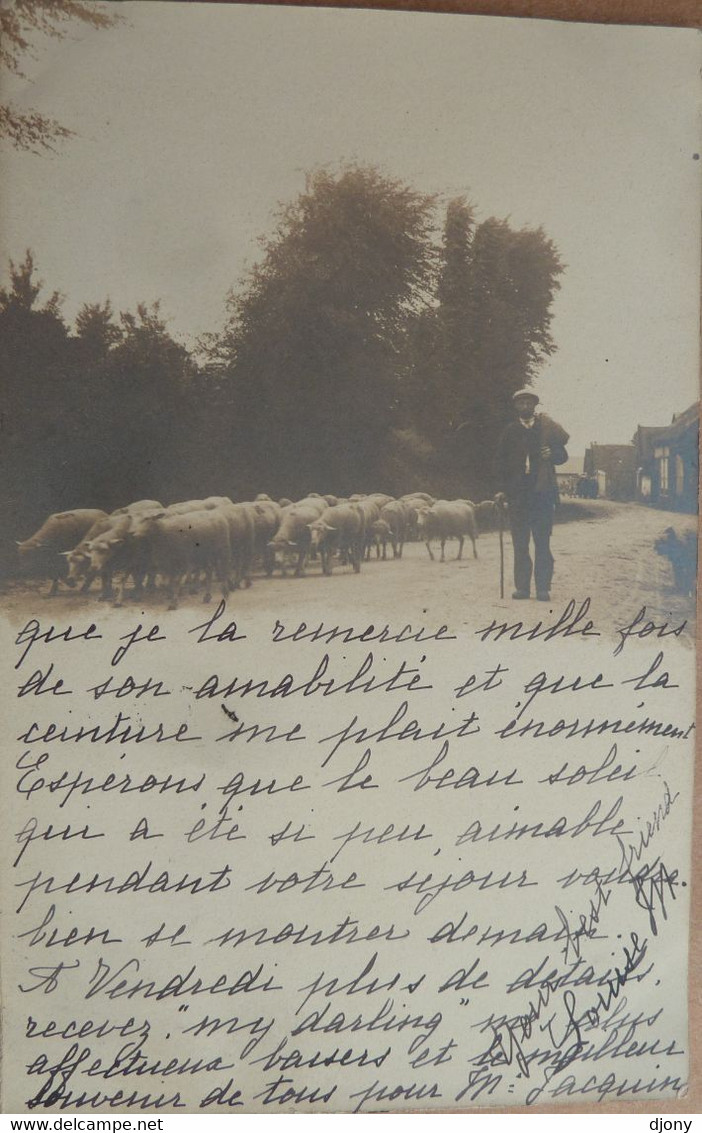 que je la remercie mille fois
de son amabilité et que la
ceinture me plait énormément
Espérons que le beau soleil
qui a été si peu aimable
pendant votre séjour voudra
bien se montrer demain.
A Vendredi plus de détails,
recevez, "my darling" mes plus
affectueux baisers et le meilleur
souvenir de tous pour Mr Jacquin
Your best friend
Louise M.
delcampe.net
djony